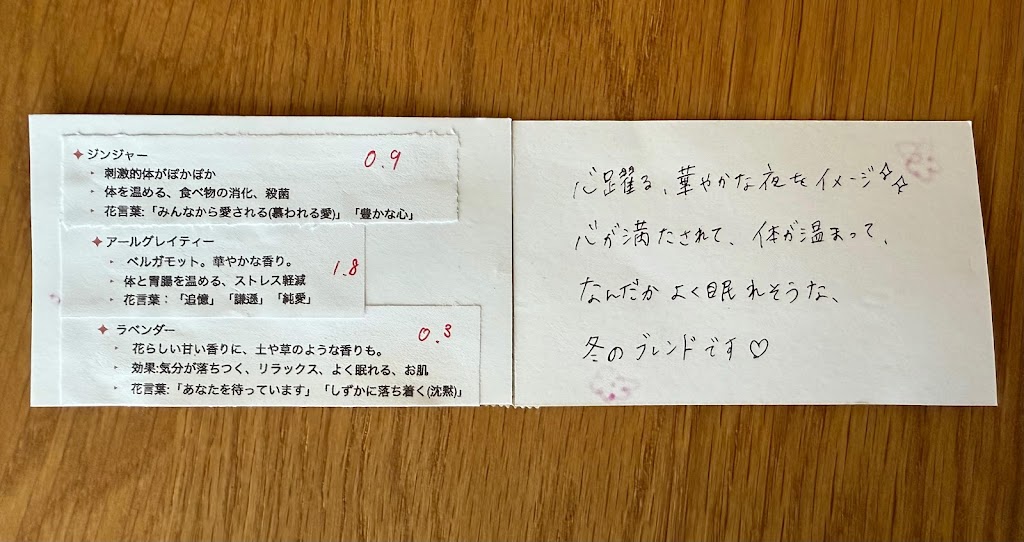 ✦ジンジャー 0.9
‣ 刺激的体がぽかぽか
‣ 体を温める、食べ物の消化、殺菌
‣ 花言葉:「みんなから愛される(慕われる愛)」「豊かな心」
✦アールグレイティー
‣ ベルガモット。華やかな香り。 1.8
‣ 体と胃腸を温める、ストレス軽減
‣ 花言葉：「追憶」「謙遜」「純愛」
✦ ラベンダー 0.3
‣ 花らしい甘い香りに、土や草のような香りも。
‣ 効果:気分が落ちつく、リラックス、よく眠れる、お肌
‣ 花言葉:「あなたを待っています」「しずかに落ち着く(沈黙)」
心躍る、華やかな夜をイメージ✧✧
心が満たされて、体が温まって、
なんだかよく眠れそうな、
冬のブレンドです♡